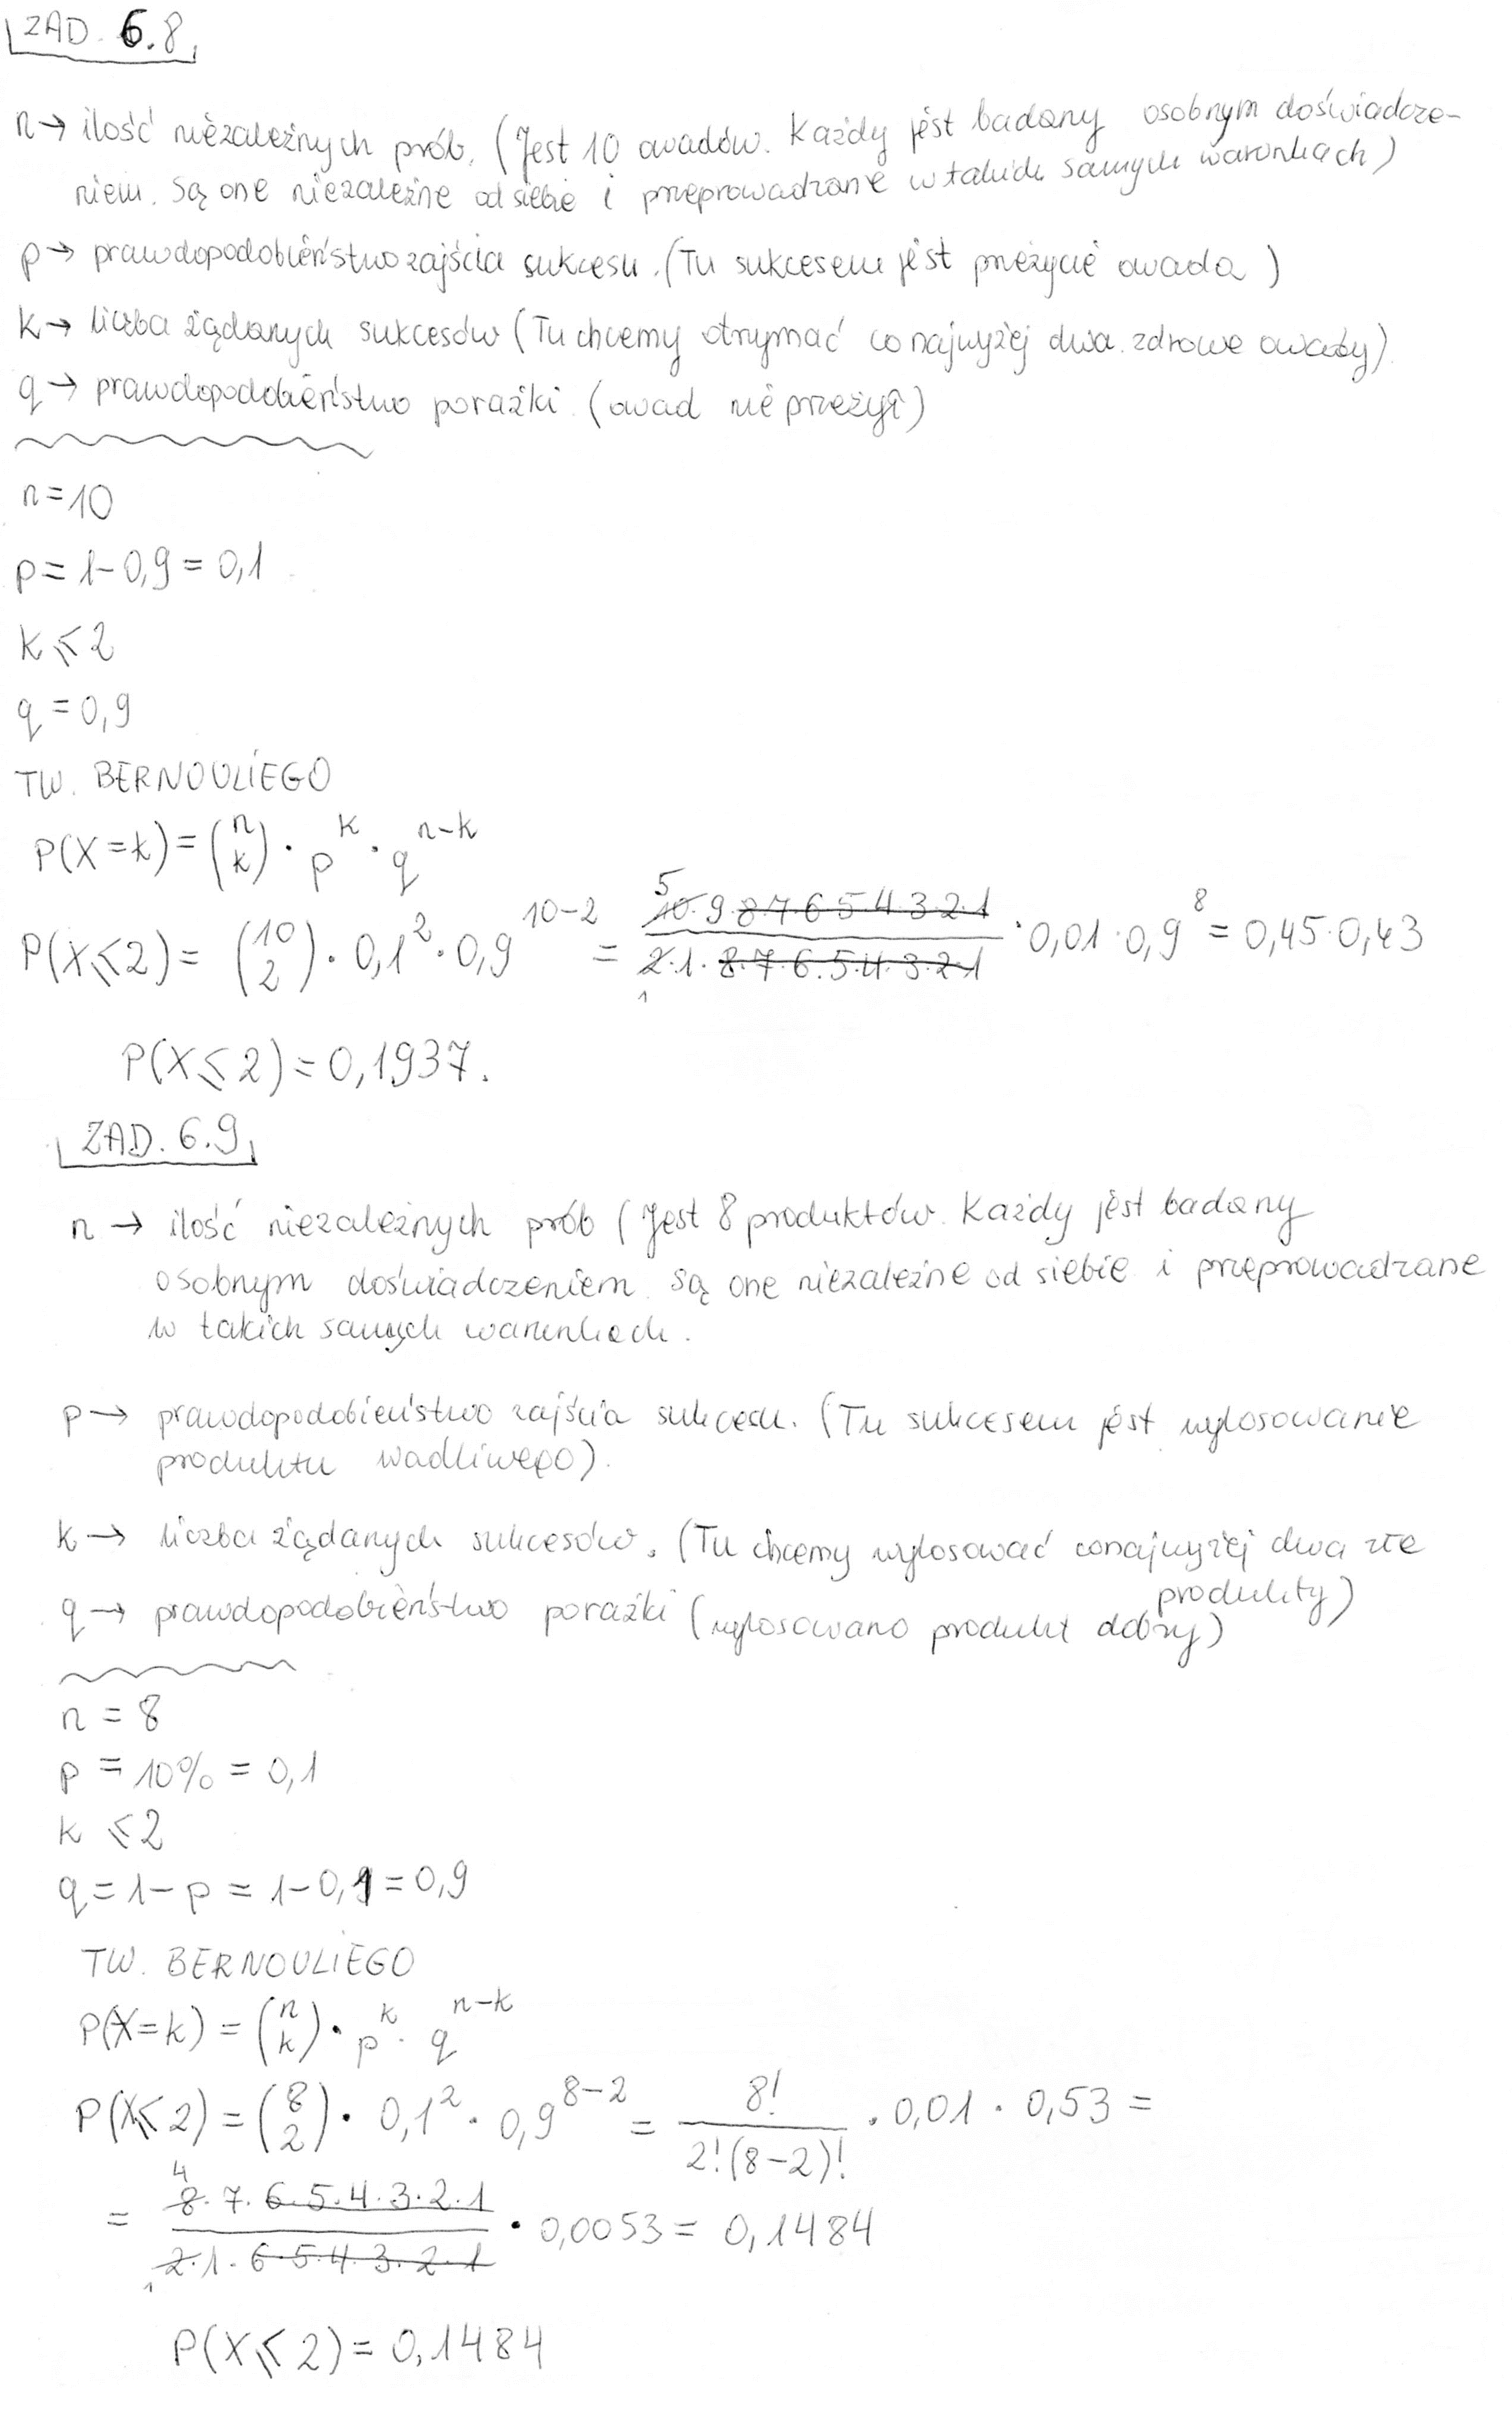 ZAD. 6.8
n → ilość niezależnych prób. (Jest 10 owadów. Każdy jest badany osobnym doświadcze-
niem. Są one niezależne od siebie i przeprowadzane w takich samych warunkach)
p → prawdopodobieństwo zajścia sukcesu. (Tu sukcesem jest przeżycie owada)
k → liczba żądanych sukcesów (Tu chcemy otrzymać co najwyżej dwa zdrowe owady)
q → prawdopodobieństwo porażki (owad nie przeżył)
n = 10
p = 1 - 0,9 = 0,1
k ≤ 2
q = 0,9
TW. BERNOULIEGO
P(X=k) = (n k) · p^k · q^(n-k)
P(X≤2) = (10 2) · 0,1² · 0,9^(10-2) = (10·9·8·7·6·5·4·3·2·1)/(2·1·8·7·6·5·4·3·2·1) · 0,01 · 0,9^8 = 0,45·0,43
P(X≤2) = 0,1937.
ZAD. 6.9
n → ilość niezależnych prób (Jest 8 produktów. Każdy jest badany
osobnym doświadczeniem. Są one niezależne od siebie i przeprowadzane
w takich samych warunkach.
p → prawdopodobieństwo zajścia sukcesu. (Tu sukcesem jest wylosowanie
produktu wadliwego).
k → liczba żądanych sukcesów. (Tu chcemy wylosować conajwyżej dwa złe
produkty)
q → prawdopodobieństwo porażki (wylosowano produkt dobry)
n = 8
p = 10% = 0,1
k ≤ 2
q = 1 - p = 1 - 0,1 = 0,9
TW. BERNOULIEGO
P(X=k) = (n k) · p^k · q^(n-k)
P(X≤2) = (8 2) · 0,1² · 0,9^(8-2) = 8!/(2!(8-2)!) · 0,01 · 0,53 =
= (8·7·6·5·4·3·2·1)/(2·1·6·5·4·3·2·1) · 0,0053 = 0,1484
P(X≤2) = 0,1484